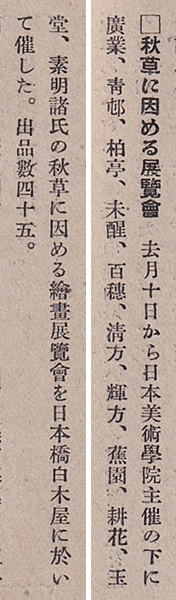 □秋草に因める展覽會　去月十日から日本美術學院主催の下に
廣業、靑邨、柏亭、未醒、百穗、淸方、輝方、蕉園、耕花、玉
堂、素明諸氏の秋草に因める繪畫展覽會を日本橋白木屋に於い
て催した。出品數四十五。